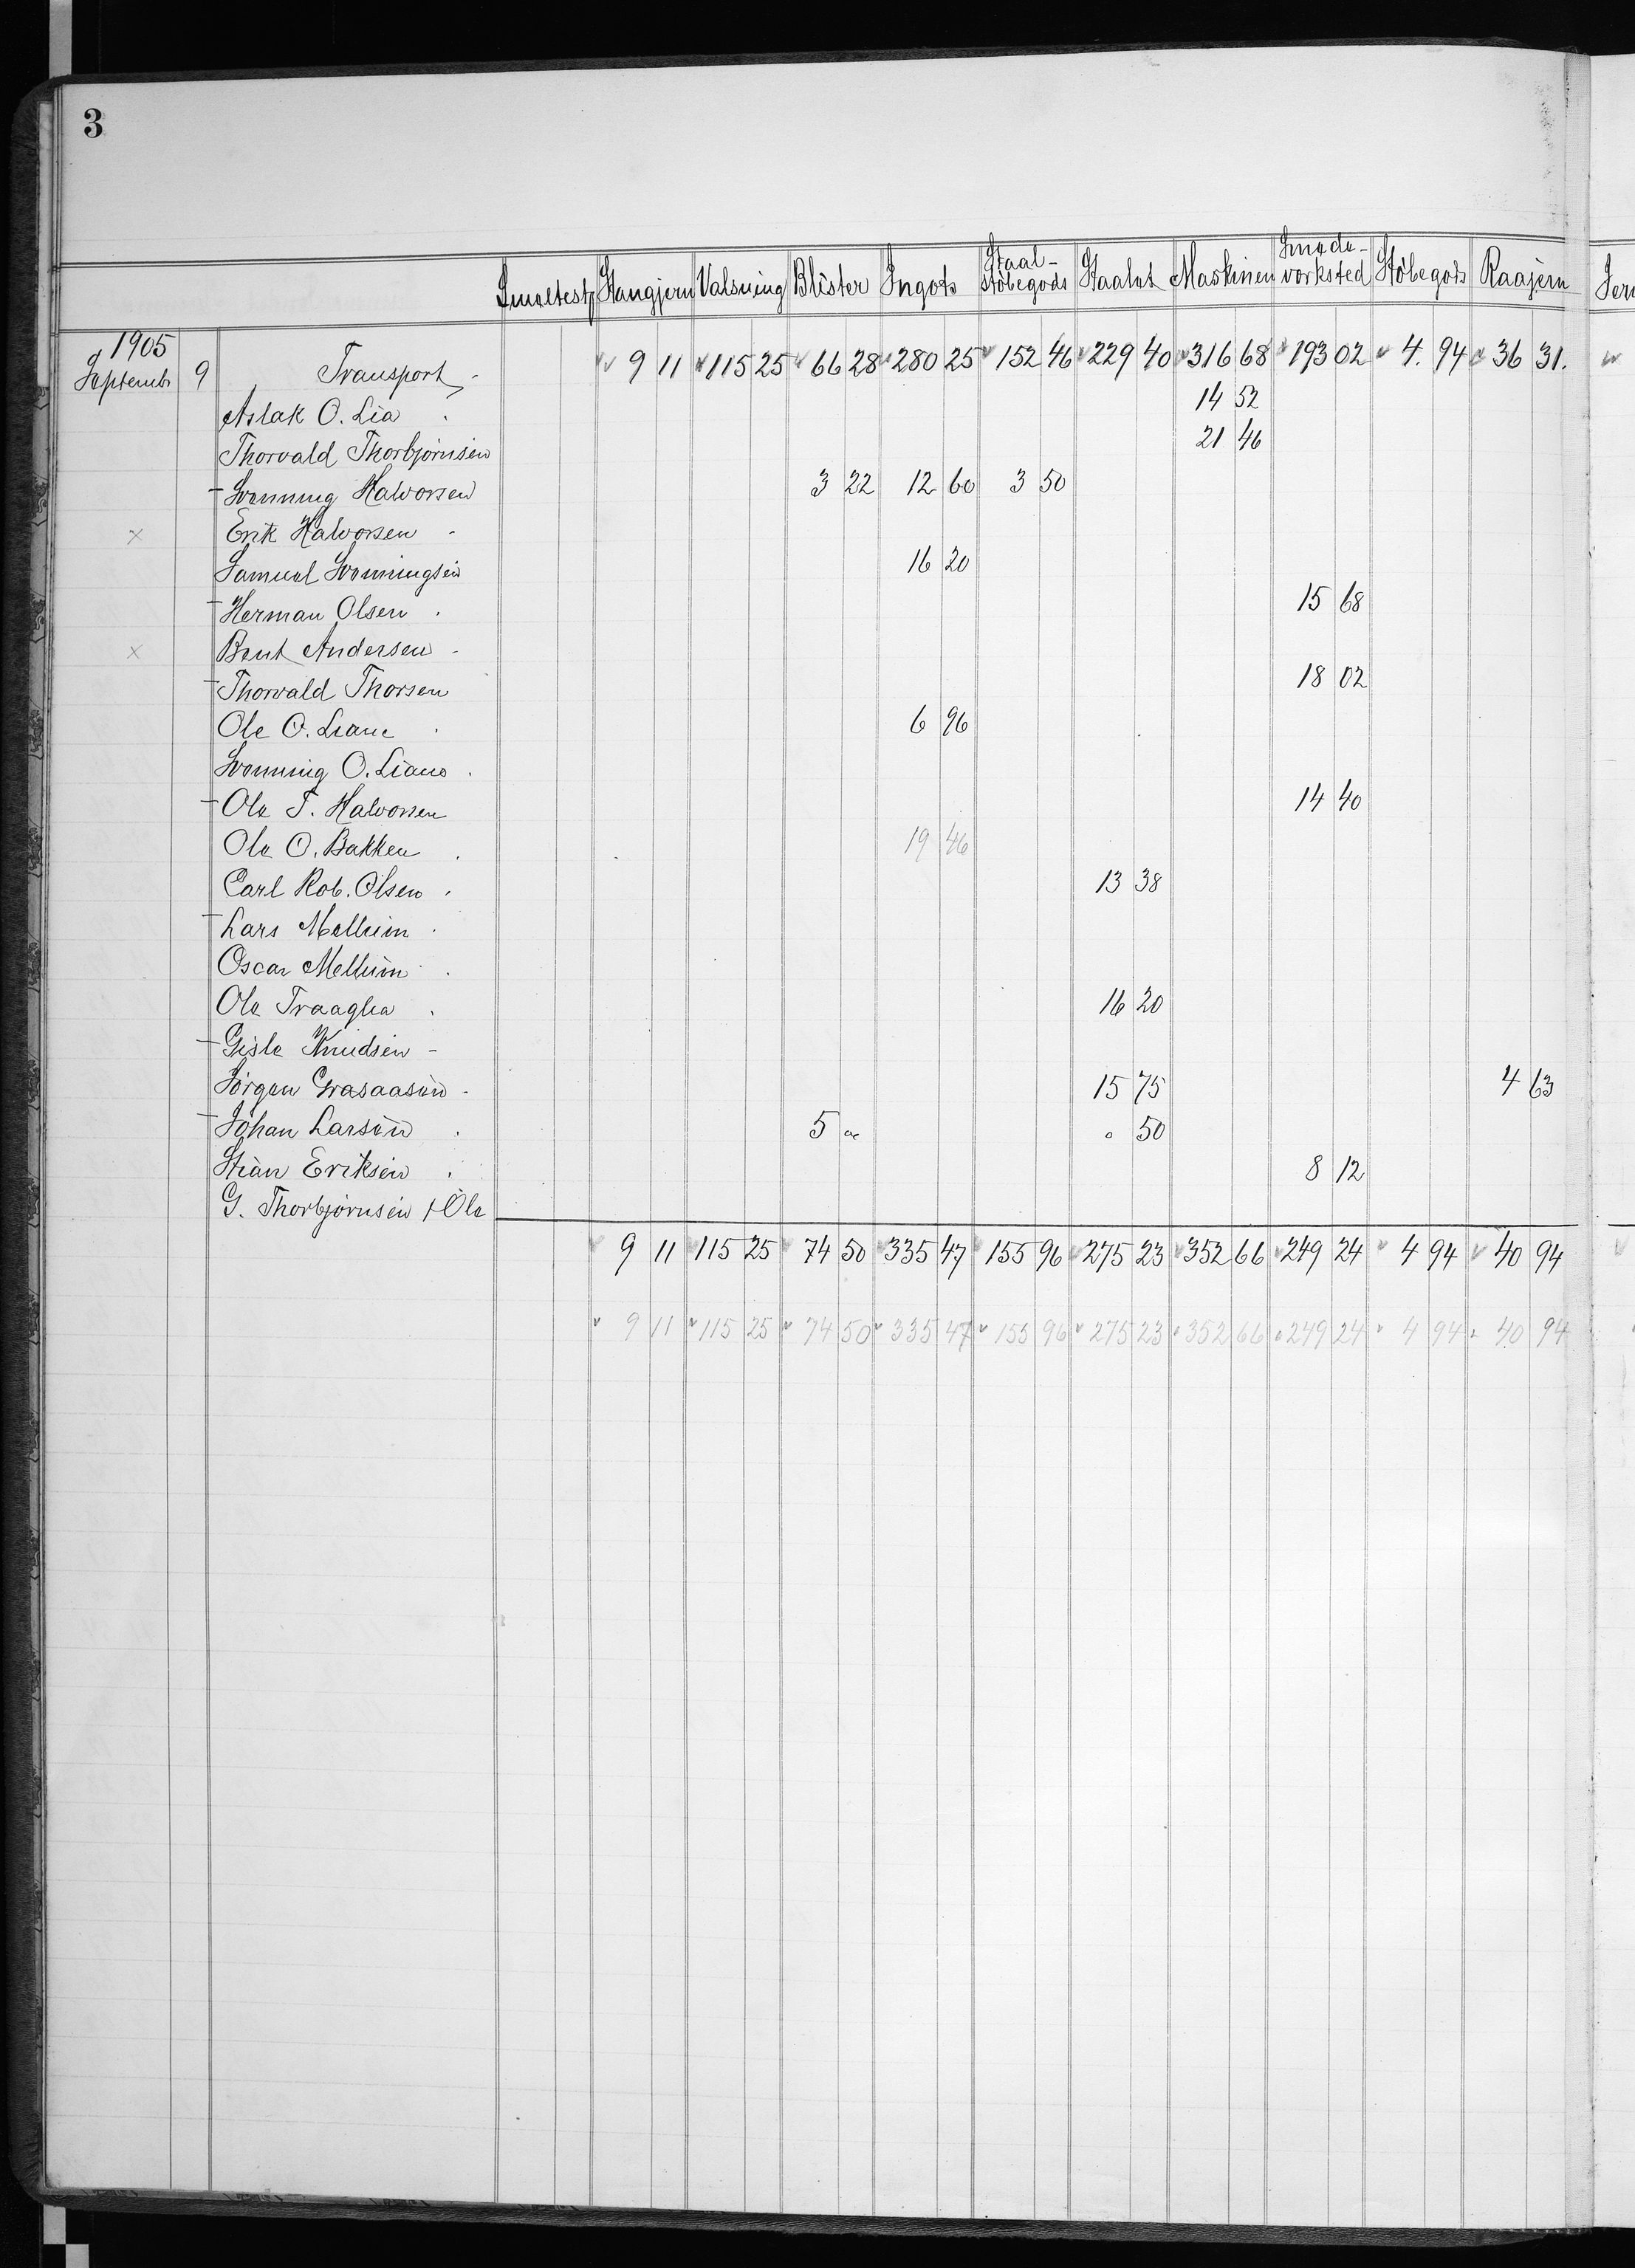 3
Smeltestg Stangjern Valsning Blister Ingots Staal-støbegods Staalut Maskinen Smedeverksted Støbegods Raajern
1905
Septembr 9 Transport 9 11 115 25 66 28 280 25 152 46 229 40 316 68 193 02 4. 94 36 31.
Aslak O. Lia 14 52
Thorvald Thorbjørnsen 21 46
- Svenning Halvorsen 3 22 12 60 3 50
× Erik Halvorsen -
Samuel Svenningsen 16 20
- Herman Olsen 15 68
× Bent Andersen -
- Thorvald Thorsen 18 02
Ole O. Liane 6 96
Svenning O. Liane
- Ole T. Halvorsen 14 40
Ole O. Bakken 19 46
Carl Rob. Olsen 13 38
- Lars Mellum
Oscar Mellum
Ole Traaglia 16 20
- Gisle Knudsen -
Jørgen Grasaasen - 15 75 4 63
- Johan Larsen 5 " " 50
Stian Eriksen 8 12
G. Thorbjørnsen + Ole
9 11 115 25 74 50 335 47 155 96 275 23 352 66 249 24 4 94 40 94
9 11 115 25 74 50 335 47 155 96 275 23 352 66 249 24 4 94 40 94